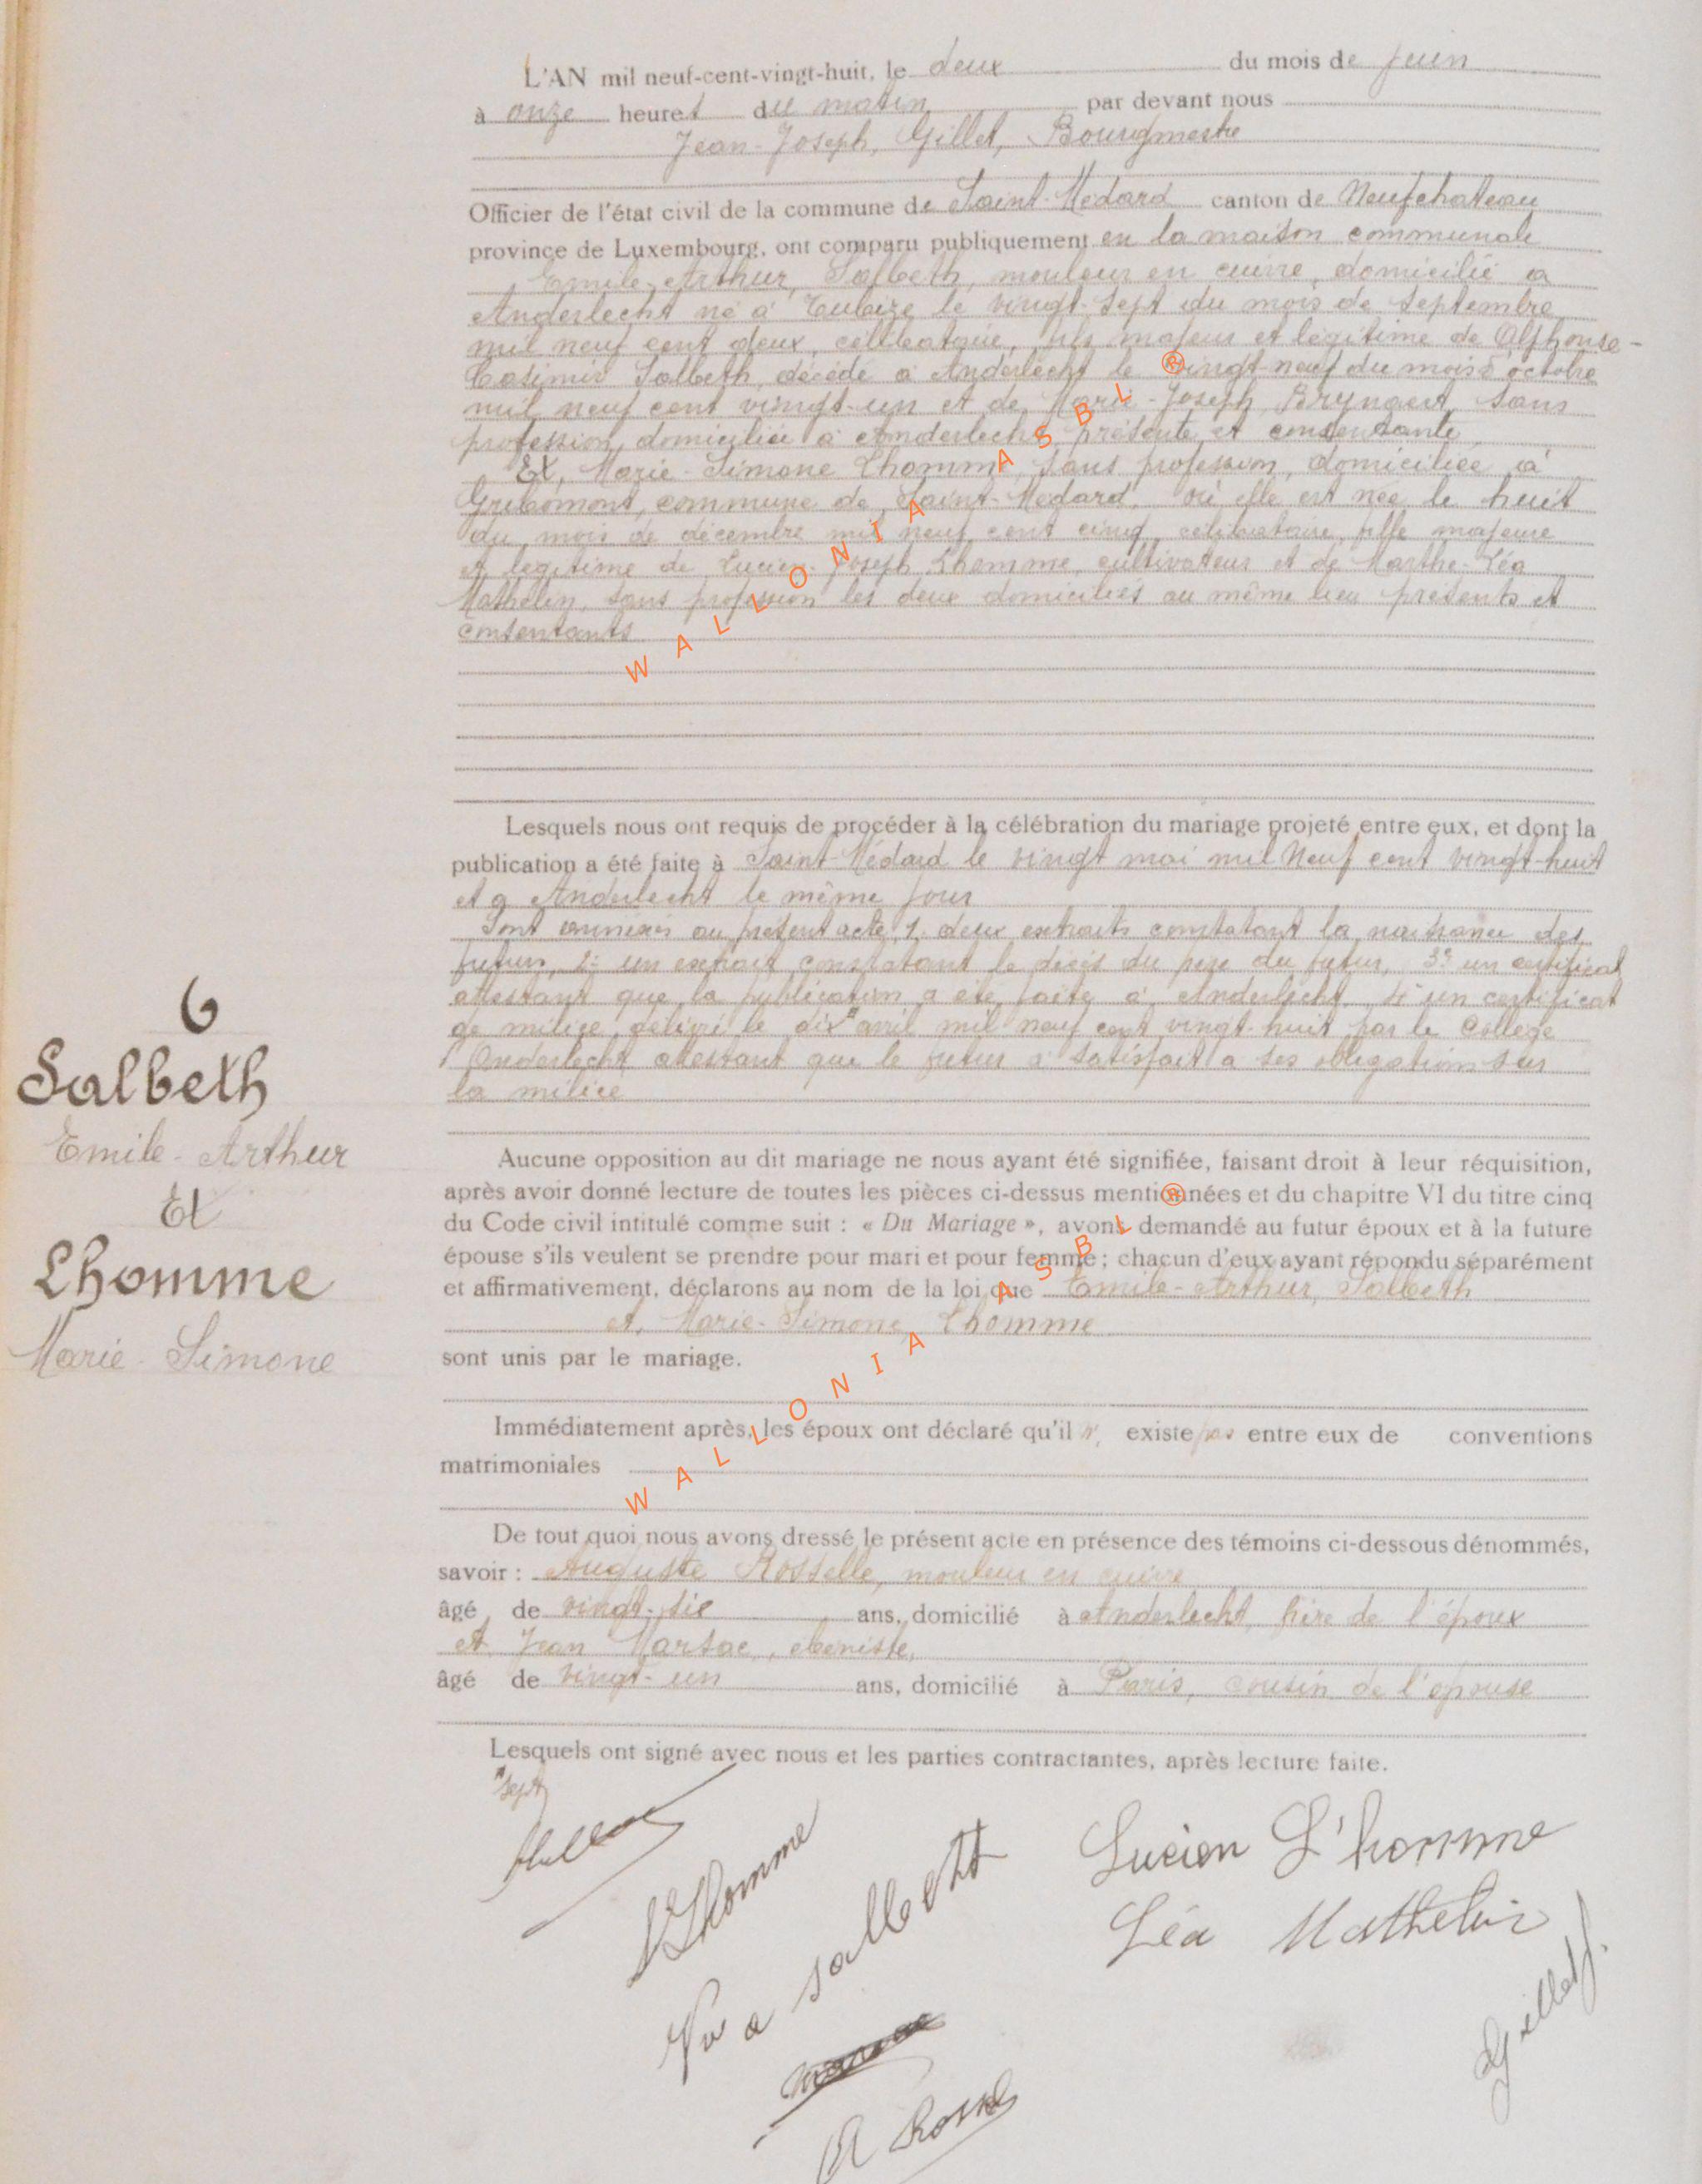 L'AN mil neuf-cent-vingt-huit, le deux du mois de juin
à onze heures du matin par devant nous
Jean-Joseph, Gillet, Bourgmestre
Officier de l'état civil de la commune de Saint-Médard canton de Neufchateau
province de Luxembourg, ont comparu publiquement en la maison communale
Emile-Arthur, Salbeth, mouleur en cuivre, domicilié à
Anderlecht né à Tubize le vingt-sept du mois de septembre
mil neuf cent deux, célibataire, fils majeur et légitime de Alphonse-
Casimir Salbeth, décédé à Anderlecht le vingt-neuf du mois d'octobre
mil neuf cent vingt-un et de Marie-Joseph, Brynaert, sans
profession, domiciliée à Anderlecht, présente et consentante,
Et, Marie-Simone Lhomme, sans profession, domiciliée à
Gribomont, commune de Saint-Médard, où elle est née le huit
du mois de décembre mil neuf cent cinq, célibataire, fille majeure
et légitime de Lucien-Joseph Lhomme, cultivateur et de Marthe-Léa
Mathelin, sans profession les deux domiciliés au même lieu présents et
consentants
Lesquels nous ont requis de procéder à la célébration du mariage projeté entre eux, et dont la
publication a été faite à Saint-Médard le vingt mai mil neuf cent vingt-huit
et à Anderlecht le même jour
Sont annexés au présent acte, 1. deux extraits constatant la naissance des
futurs, 2° un extrait constatant le décès du père du futur, 3° un certificat
attestant que la publication a été faite à Anderlecht, 4° un certificat
de milice délivré le dix avril mil neuf cent vingt-huit par le Collège
d'Anderlecht attestant que le futur a satisfait à ses obligations sur
la milice
6
Salbeth
Emile-Arthur
Et
Lhomme
Marie-Simone
Aucune opposition au dit mariage ne nous ayant été signifiée, faisant droit à leur réquisition,
après avoir donné lecture de toutes les pièces ci-dessus mentionnées et du chapitre VI du titre cinq
du Code civil intitulé comme suit : « Du Mariage », avons demandé au futur époux et à la future
épouse s'ils veulent se prendre pour mari et pour femme ; chacun d'eux ayant répondu séparément
et affirmativement, déclarons au nom de la loi que Emile-Arthur, Salbeth
et, Marie-Simone, Lhomme
sont unis par le mariage.
Immédiatement après, les époux ont déclaré qu'il n' existe pas entre eux de conventions
matrimoniales
De tout quoi nous avons dressé le présent acte en présence des témoins ci-dessous dénommés,
savoir : Auguste Rosselle, mouleur en cuivre
âgé de vingt-six ans, domicilié à Anderlecht, frère de l'époux
et Jean Marsac, ébéniste,
âgé de vingt-un ans, domicilié à Paris, cousin de l'épouse
Lesquels ont signé avec nous et les parties contractantes, après lecture faite.
sept
Lhomme
Lucien L'homme
Léa Mathelin
Salbeth
Gillet J.
A Rossel
WALLONIA ASBL ®
WALLONIA ASBL ®